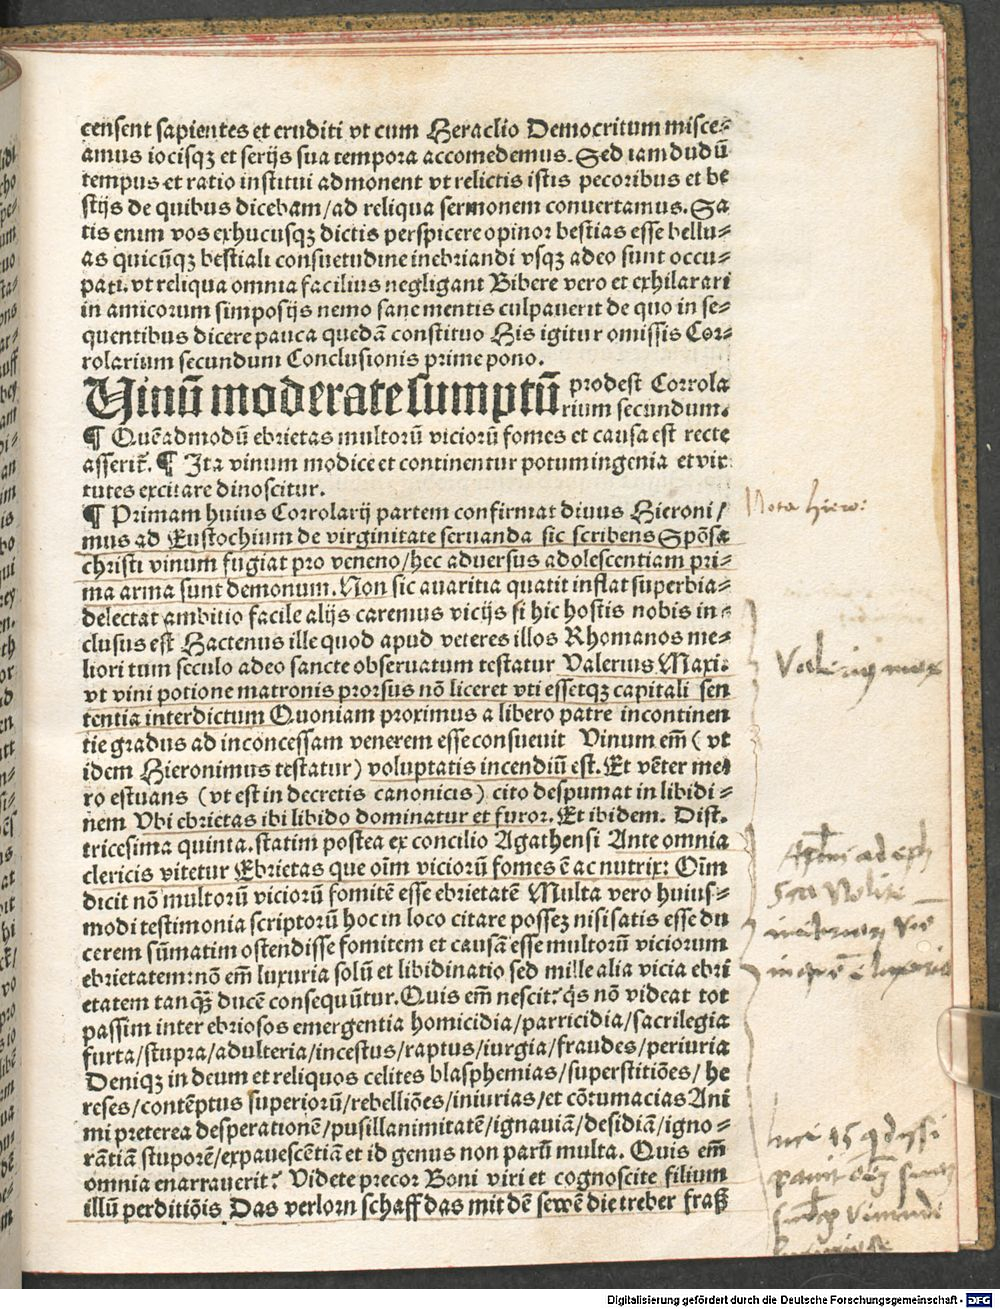 censent sapientes et eruditi vt cum Heraclio Democritum misce⸗
amus iocisqꝫ et serijs sua tempora accomedemus. Sed iamdudū
tempus et ratio institui admonent vt relictis istis pecoribus et be
stijs de quibus dicebam/ad reliqua sermonem conuertamus. Sa
tis enim vos exhucusqꝫ dictis perspicere opinor bestias esse bellu⸗
as quicūqꝫ bestiali consuetudine inebriandi vsqꝫ adeo sunt occu⸗
pati. vt reliqua omnia facilius negligant Bibere vero et exhilarari
in amicorum simposijs nemo sane mentis culpauerit de quo in se⸗
quentibus dicere pauca quedā constituo His igitur omissis Cor⸗
rolarium secundum Conclusionis prime pono.
Uinū moderate sumptū prodest Corrola
rium secundum.
¶ Quēadmodū ebrietas multorū viciorū fomes et causa est recte
asserit̄. ¶ Ita vinum modice et continentur potum ingenia et vir
tutes excitare dinoscitur.
¶ Primam huius Corrolarij partem confirmat diuus Hieroni/
mus ad Eustochium de virginitate seruanda sic scribens Spōsa
christi vinum fugiat pro veneno/hec aduersus adolescentiam pri⸗
ma arma sunt demonum. Non sic auaritia quatit inflat superbia⸗
delectat ambitio facile alijs caremus vicijs si hic hostis nobis in⸗
clusus est Hactenus ille quod apud veteres illos Rhomanos me⸗
liori tum seculo adeo sancte obseruatum testatur Valerius Maxi.
vt vini potione matronis prorsus nō liceret vti essetqꝫ capitali sen
tentia interdictum Quoniam proximus a libero patre incontinen
tie gradus ad inconcessam venerem esse consueuit Vinum em̄ (vt
idem Hieronimus testatur) voluptatis incendiū est. Et vēter me⸗
ro estuans (vt est in decretis canonicis) cito despumat in libidi⸗
nem Vbi ebrietas ibi libido dominatur et furor. Et ibidem. Dist.
tricesima quinta. statim postea ex concilio Agathensi Ante omnia
clericis vitetur Ebrietas que oīm viciorū fomes ē ac nutrix: Oīm
dicit nō multorū viciorū fomitē esse ebrietatē Multa vero huius⸗
modi testimonia scriptorū hoc in loco citare possez nisi satis esse du
cerem sūmatim ostendisse fomitem et causā esse multorū viciorum
ebrietatem: nō em̄ luxuria solū et libidinatio sed mille alia vicia ebri
etatem tanqꝫ̄ ducē consequūtur. Quis em̄ nescit: q̇s nō videat tot
passim inter ebriosos emergentia homicidia/parricidia/sacrilegia
furta/stupra/adulteria/incestus/raptus/iurgia/fraudes/periuria
Deniqꝫ in deum et reliquos celites blasphemias/superstitiōes/ he
reses/contēptus superiorū/rebelliōes/iniurias/et cōtumacias Ani
mi preterea desperationē/pusillanimitatē/ignauiā/desidiā/igno⸗
rātiā stuporē/expauescētiā et id genus non parū multa. Quis em̄
omnia enarrauerit: Videte precor Boni viri et cognoscite filium
illū perditiōis Das verlorn schaff das mit dē sewē die treber fraß
Nota hiero:
Valeriq max
ad eph
Nolite
luce 15
Digitalisierung gefördert durch die Deutsche Forschungsgemeinschaft - DFG